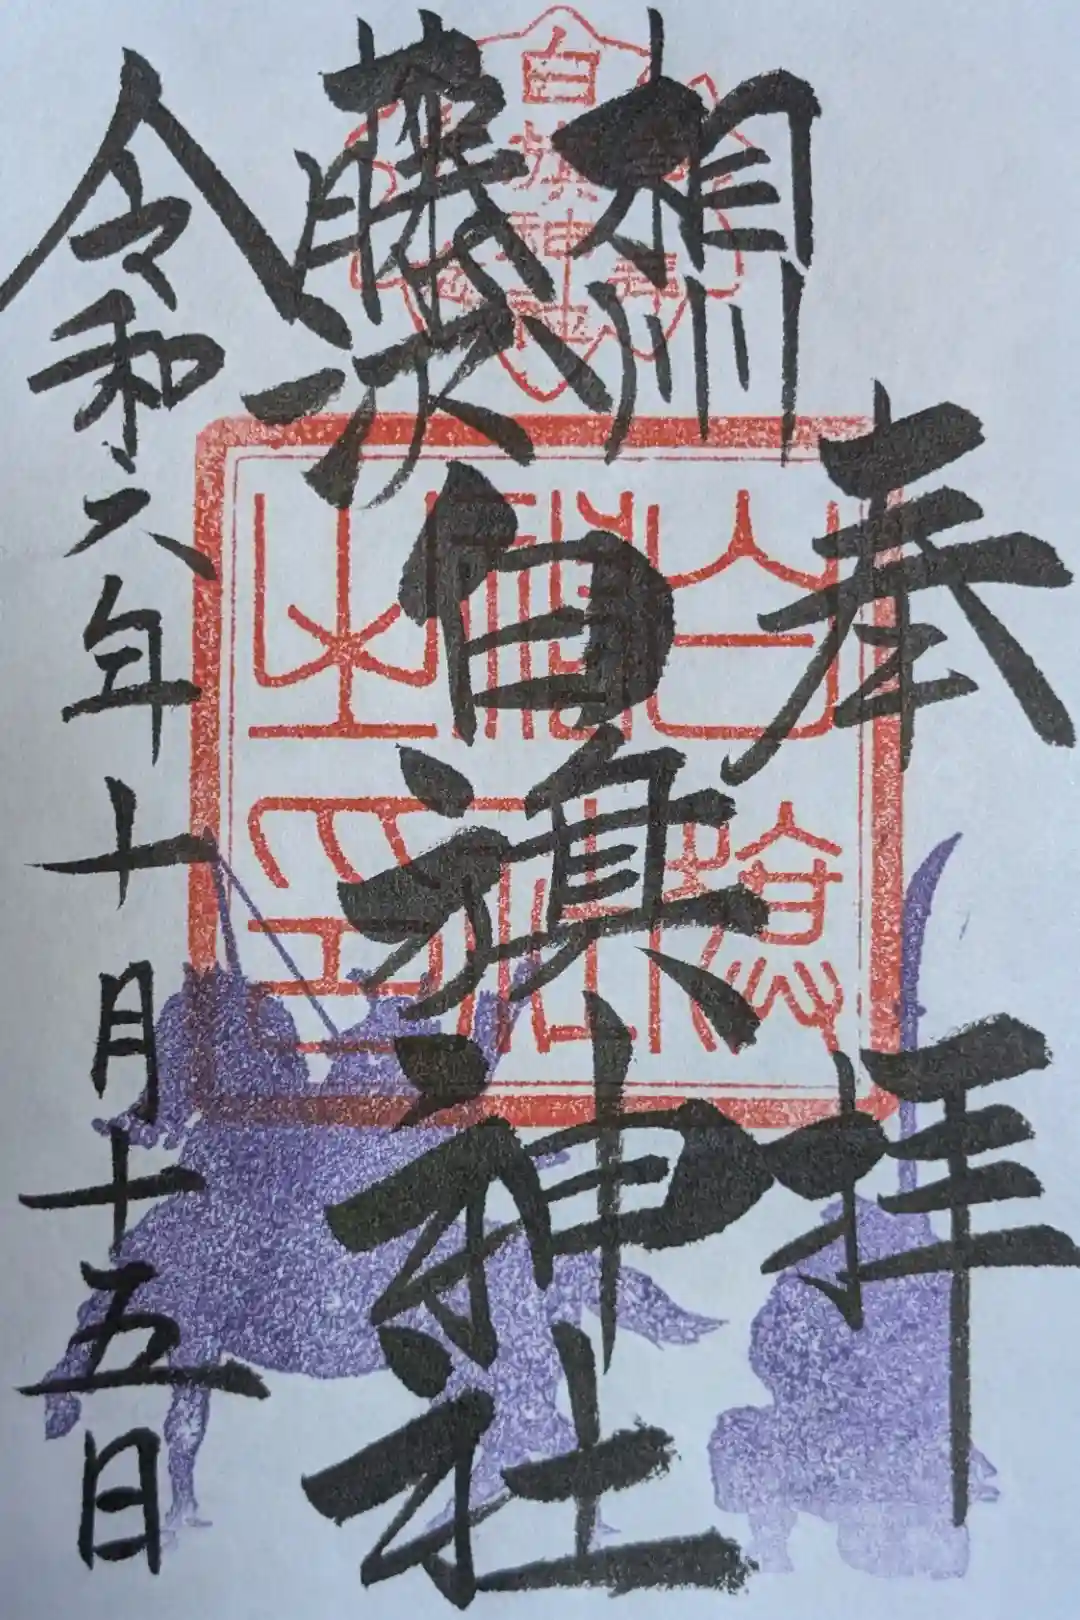 奉拝
相州
藤沢
白旗神社
令和六年十月十五日
白旗神社